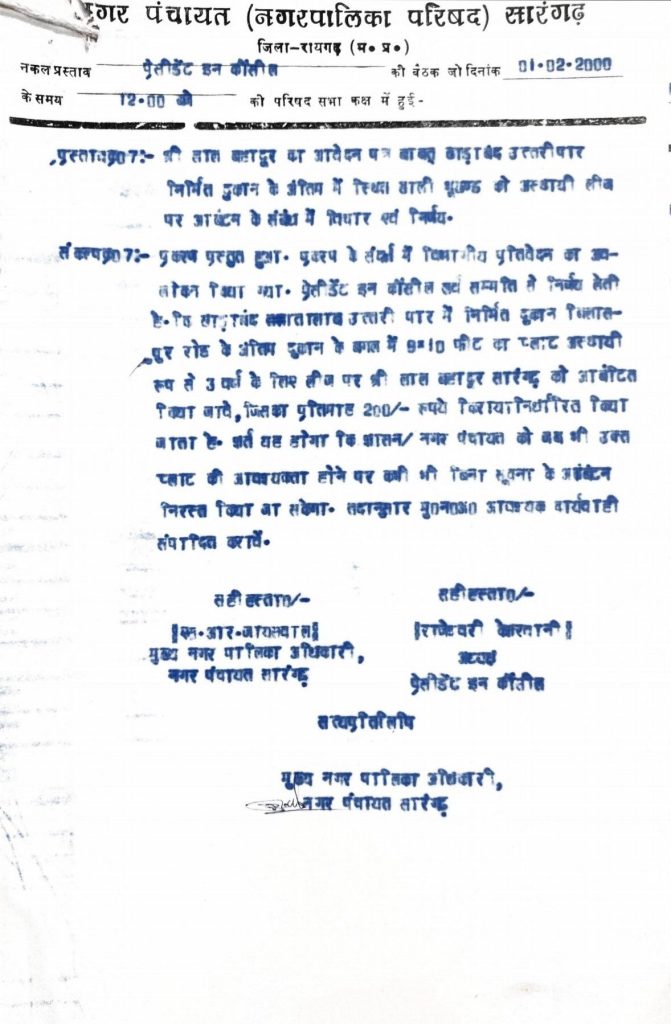 नगर पंचायत (नगरपालिका परिषद) सारंगढ़
जिला-रायगढ़ (म॰ प्र॰)
नकल प्रस्ताव प्रेसीडेंट इन कौंसील की बैठक जो दिनांक 01-02-2000
के समय 12-00 बजे को परिषद सभा कक्ष में हुई-
प्रस्ताव क्र07:- श्री लाल बहादुर का आवेदन पत्र बाबत् खाड़ाबंद उत्तरीपार
निर्मित दुकान के अंतिम में स्थित खाली भूखण्ड को अस्थायी लीज
पर आबंटन के संबंध में विचार एवं निर्णय.
संकल्प क्र07:- प्रकरण प्रस्तुत हुआ. प्रकरण के संदर्भ में विभागीय प्रतिवेदन का अव-
लोकन किया गया. प्रेसीडेंट इन कौंसील सर्व सम्मति से निर्णय लेती
है. कि खाड़ाबंद उत्तरी पार में निर्मित दुकान बिलास-
पुर रोड के अंतिम दुकान के बगल में 9=10 फीट का प्लाट अस्थायी
रूप से 3 वर्ष के लिए लीज पर श्री लाल बहादुर सारंगढ़ को आबंटित
किया जावे, जिसका प्रतिमाह 200/- रूपये किरायानिर्धारित किया
जाता है. शर्त यह होगा कि शासन/ नगर पंचायत को जब भी उक्त
प्लाट की आवश्यकता होने पर कभी भी बिना सूचना के आबंटन
निरस्त किया जा सकेगा. तदानुसार मु0न0अ0 आवश्यक कार्यवाही
संपादित करावें.
सही हस्ता0/- सहीहस्ता0/-
[एस.आर.जायसवाल] [राजेश्वरी केशरवानी]
मुख्य नगर पालिका अधिकारी, अध्यक्ष
नगर पंचायत सारंगढ़ प्रेसीडेंट इन कौंसील
सत्यप्रतिलिपि
मुख्य नगर पालिका अधिकारी,
नगर पंचायत सारंगढ़